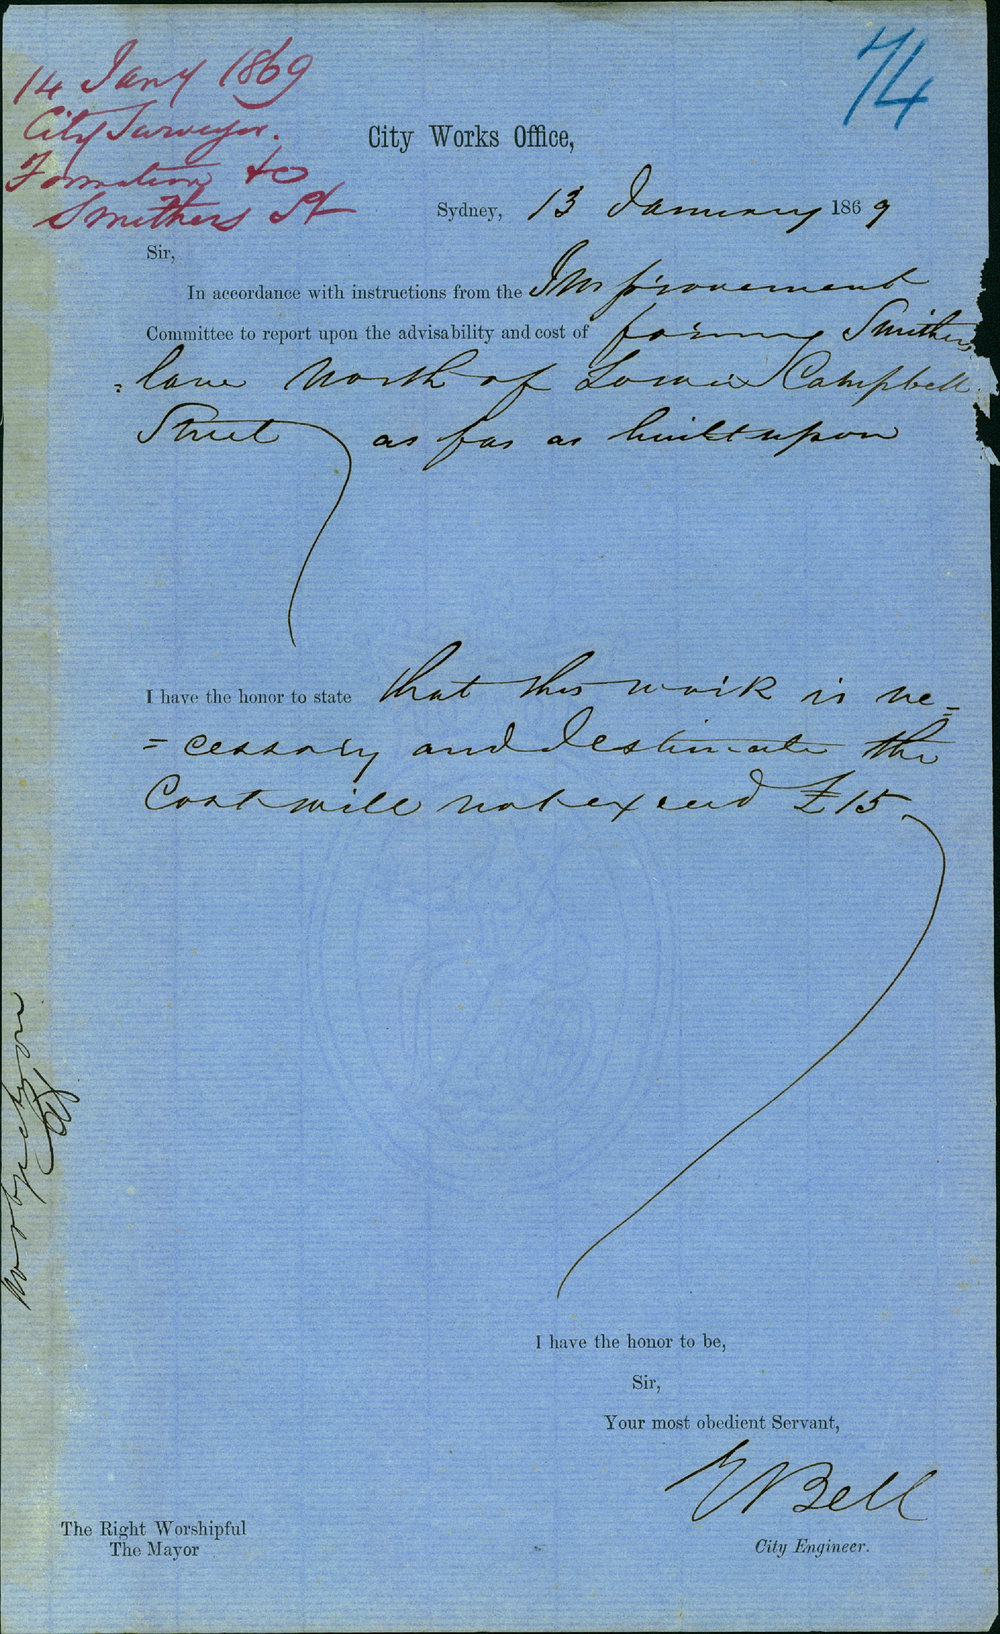 74
14 Jany 1869
City Surveyor.
Formation to
Smithers St
City Works Office,
Sydney, 13 January 1869
Sir,
In accordance with instructions from the Improvement
Committee to report upon the advisability and cost of forming Smithers
= lane North of Lower Campbell
Street as far as built upon
I have the honor to state that this work is ne=
=cessary and I estimate the
Cost will not exceed £15.
I have the honor to be,
Sir,
Your most obedient Servant,
E Bell
City Engineer.
The Right Worshipful
The Mayor